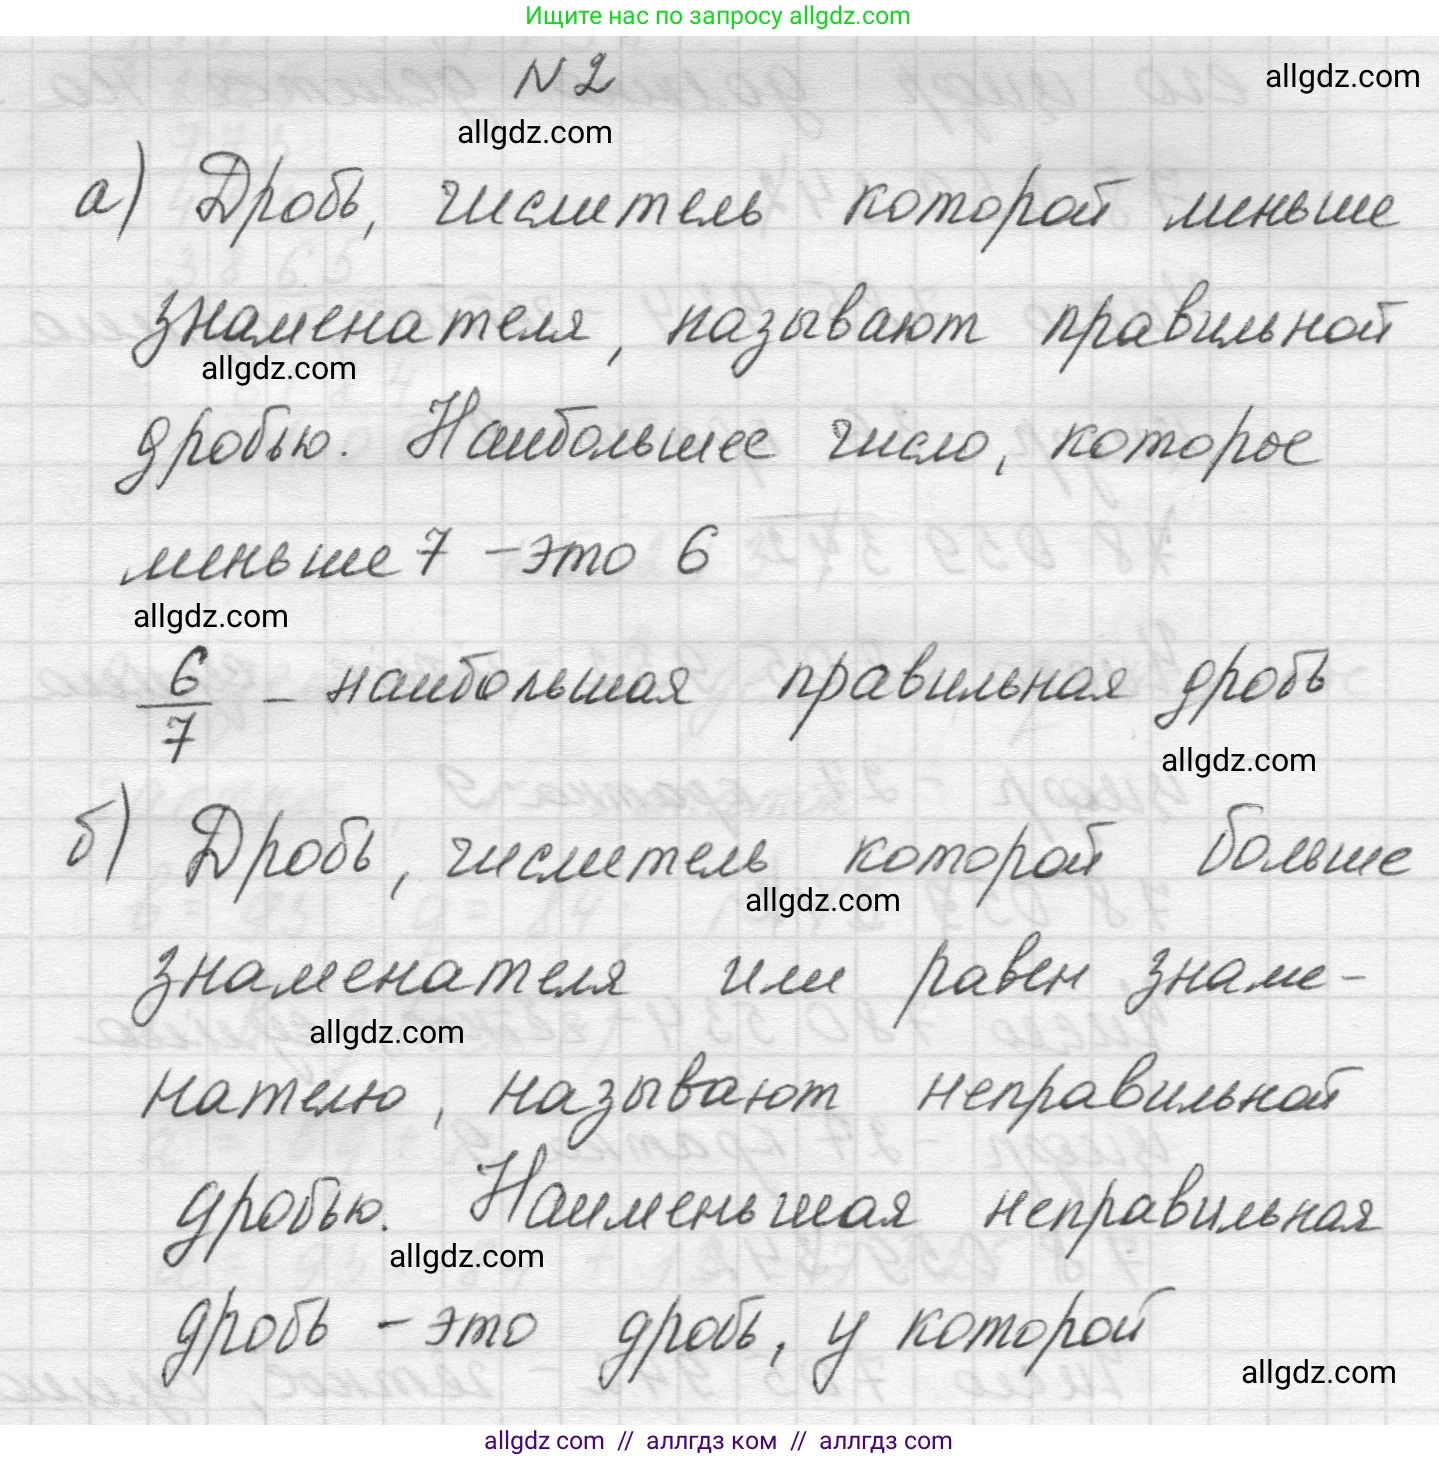 Ищите нас по запросу allgdz.com
N 2
allgdz.com
allgdz.com
а) Дробь, числитель которой меньше
знаменателя, называют правильной
allgdz.com
дробью. Наибольшее число, которое
меньше 7 – это 6
allgdz.com
6/7 – наибольшая правильная дробь
allgdz.com
б) Дробь, числитель которой больше
allgdz.com
знаменателя или равен знаме-
allgdz.com
нателю, называют неправильной
дробью. Наименьшая неправильная
allgdz.com
дробь – это дробь, у которой
allgdz.com
allgdz com // аллгдз ком // аллгdз com